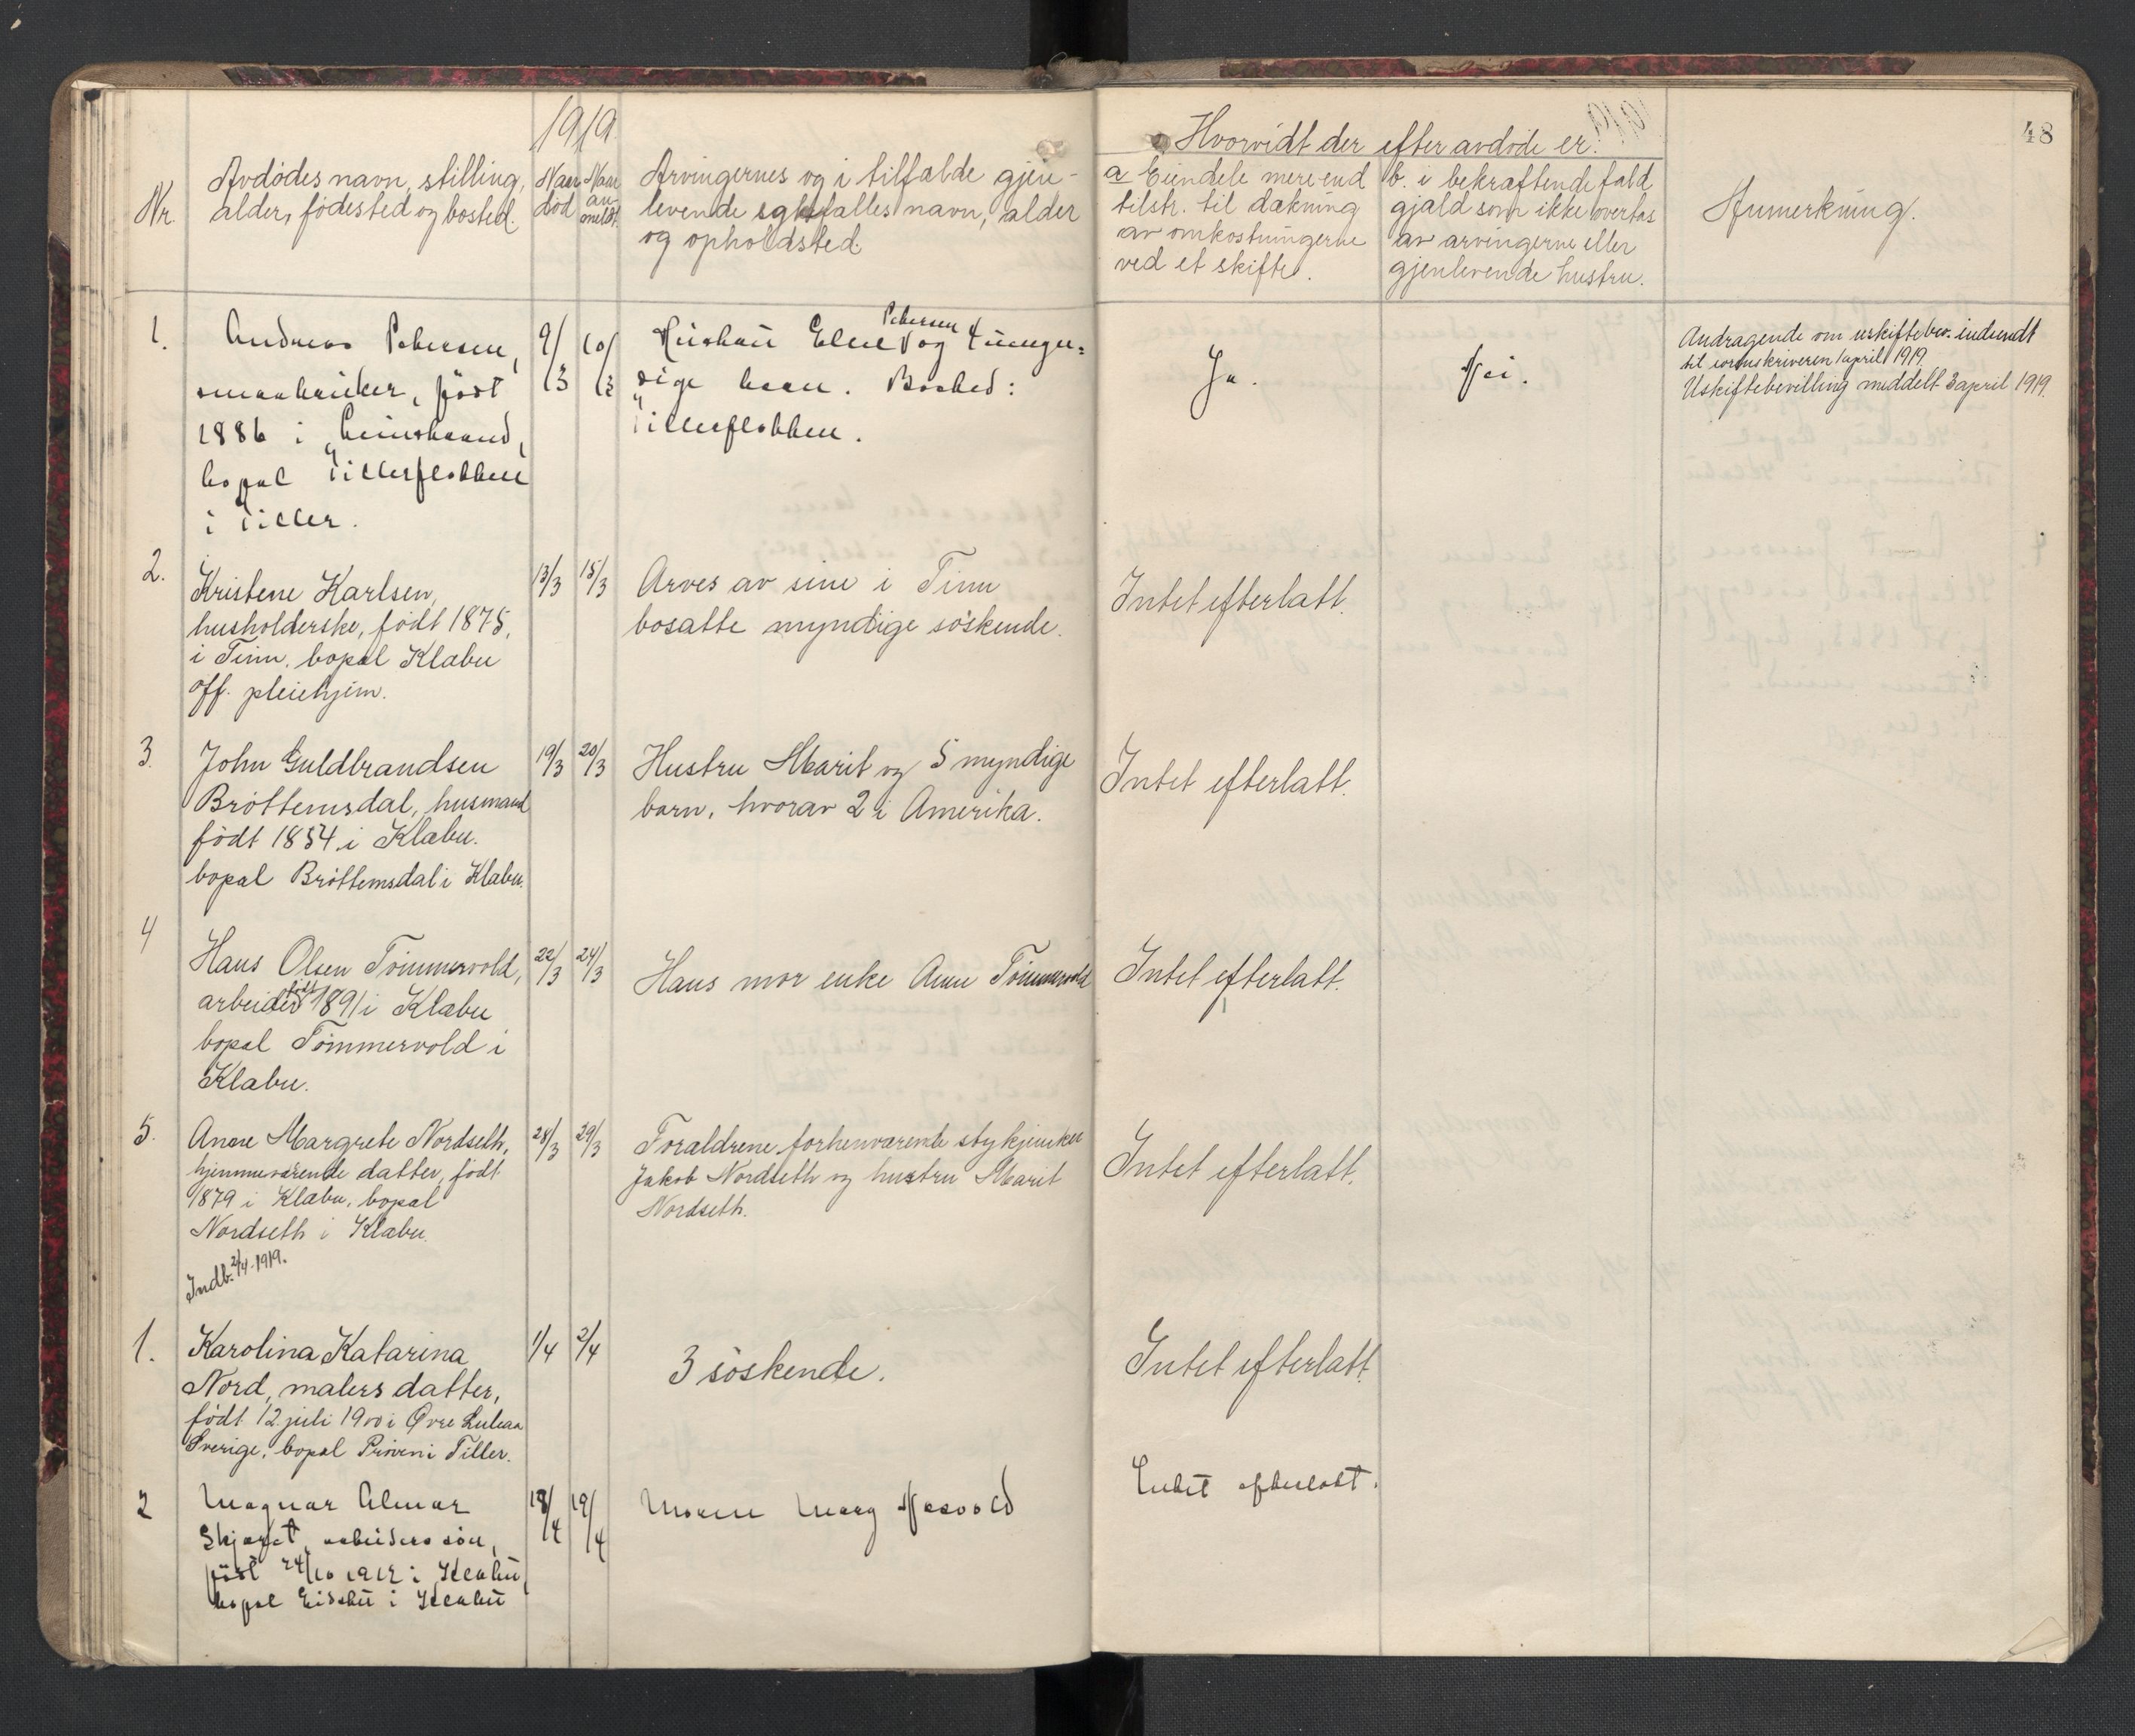 1919
48
Nr.
Avdödes navn, stilling,
alder, födested og bosted.
Naar
död
Naar
an-
meldt.
Arvingernes og i tilfælde gjen-
levende egtefælles navn, alder
og opholdsted.
Hvorvidt der efter avdöde er:
a Eiendele mere end
tilstr. til dækning
av omkostningerne
ved et skifte.
b. i bekræftende fald
gjæld som ikke overtas
av arvingerne eller
gjenlevende hustru.
Anmerkning.
1.
Andreas Petersen,
smaabruker, föst
1886 i Leinstrand,
bopæl Tillerflatten
i Tiller.
9/3
10/3
Petersen
Hustru Elen og 4 umyn=
dige barn. Bosted:
Tillerflatten.
Ja.
Nei.
Andragende om uskiftebev. indsendt
til sorenskriveren 1 april 1919
Uskiftebevilling meddelt 3 april 1919.
2.
Kristene Karlsen,
husholderske, födt 1875,
i Tinn, bopæl Klæbu
off. pleiehjem.
13/3
15/3
Arves av sine i Tinn
bosatte myndige söskende.
Intet efterlatt.
3.
John Guldbrandsen
Bröttemsdal, husmand
födt 1854 i Klæbu.
bopæl Bröttemsdal i Klæbu.
19/3
20/3
Hustru Marit og 5 myndige
barn, hvorav 2 i Amerika.
Intet efterlatt.
4
Hans Olsen Tömmervold,
arbeider födt 1891 i Klæbu
bopæl Tömmervold i
Klæbu.
22/3
24/3
Hans mor enke Anne Tömmervold
Intet efterlatt.
5.
Anne Margrete Nordseth,
hjemmeværende datter, födt
1879 i Klæbu, bopæl
Nordseth i Klæbu.
28/3
29/3
Forældrene forhenværende
Jakob Nordseth og hustru Marit
Nordseth.
Intet efterlatt.
Indb. 2/4 1919.
1.
Karolina Katarina
Nord, malers datter,
födt 12 juli 1900 i Øvre Luleaa
Sverige, bopæl i Tiller.
1/4
2/4
3 söskende.
Intet efterlatt.
2
Magnar Almar
Skjæret, arbeiders sön,
föst 24/10 1912 i Klæbu,
bopæl i Klæbu
18/4
19/4
Moren Marg
Intet efterlatt.